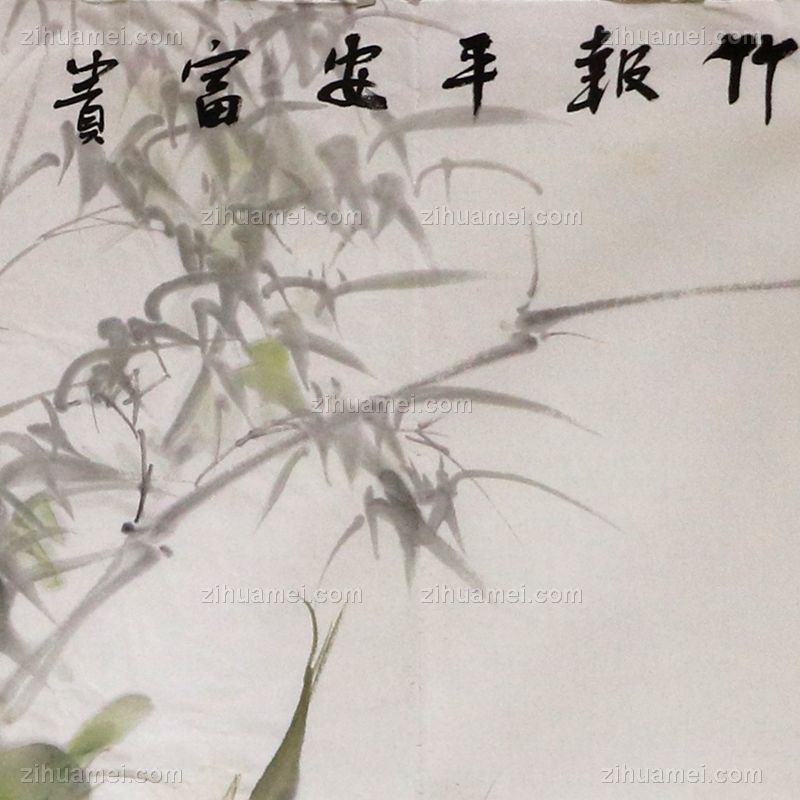 竹報平安富貴
zihuamei.com zihuamei.com zihuamei.com zihuamei.com
zihuamei.com zihuamei.com
zihuamei.com
zihuamei.com zihuamei.com
zihuamei.com zihuamei.com